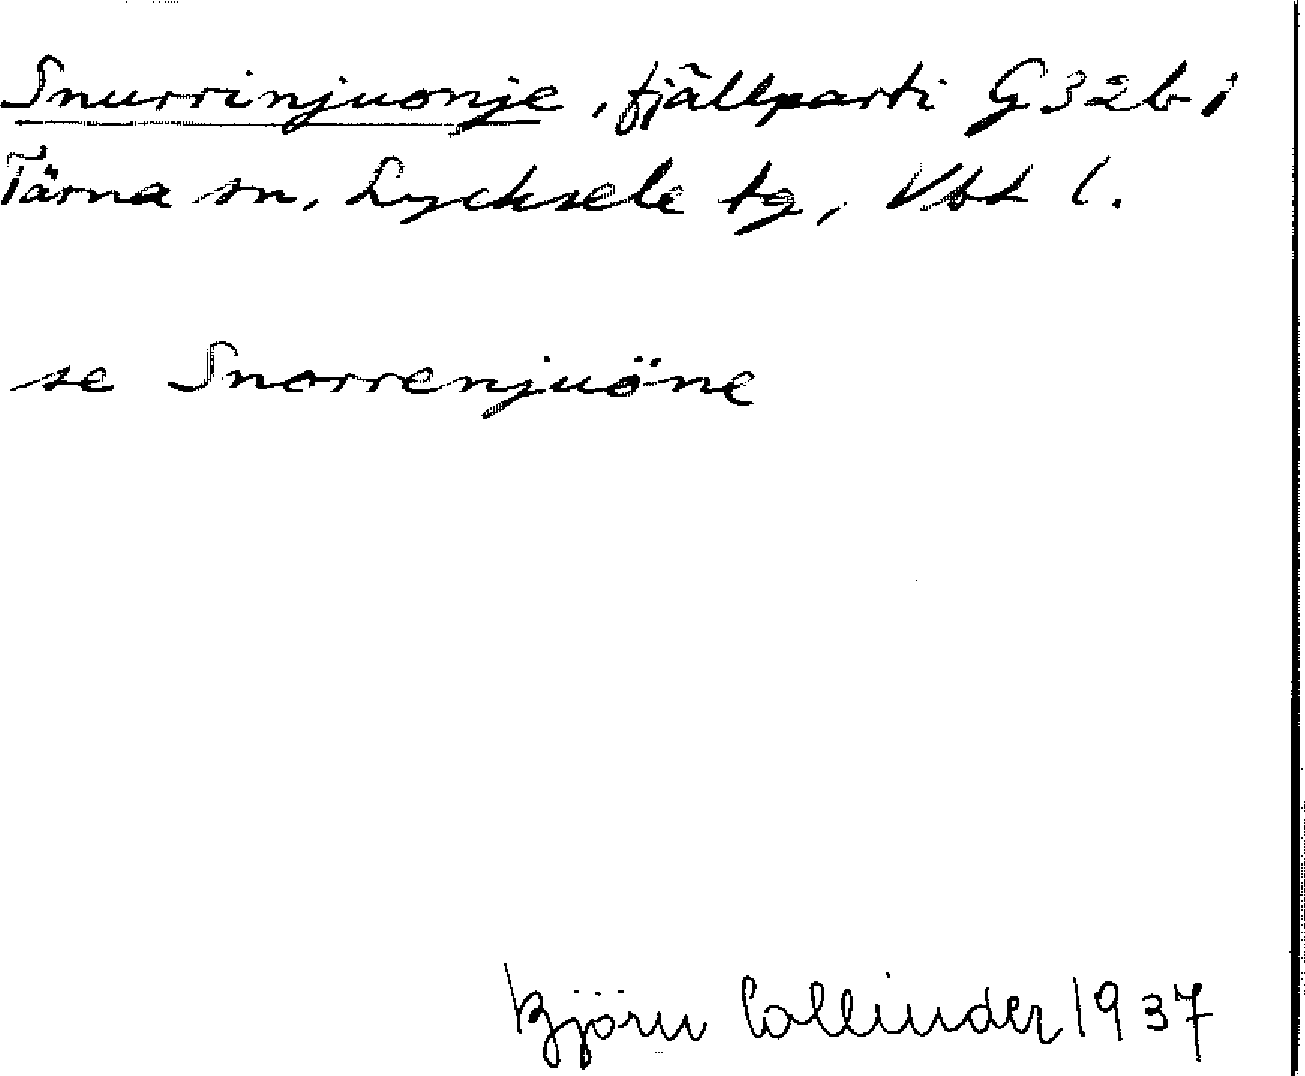 Snurrinjuonje, fjällparti G32b1
Tärna sn, Lycksele tg, Vbt l.
se Snorrenjuöne
Björn Collinder 1937